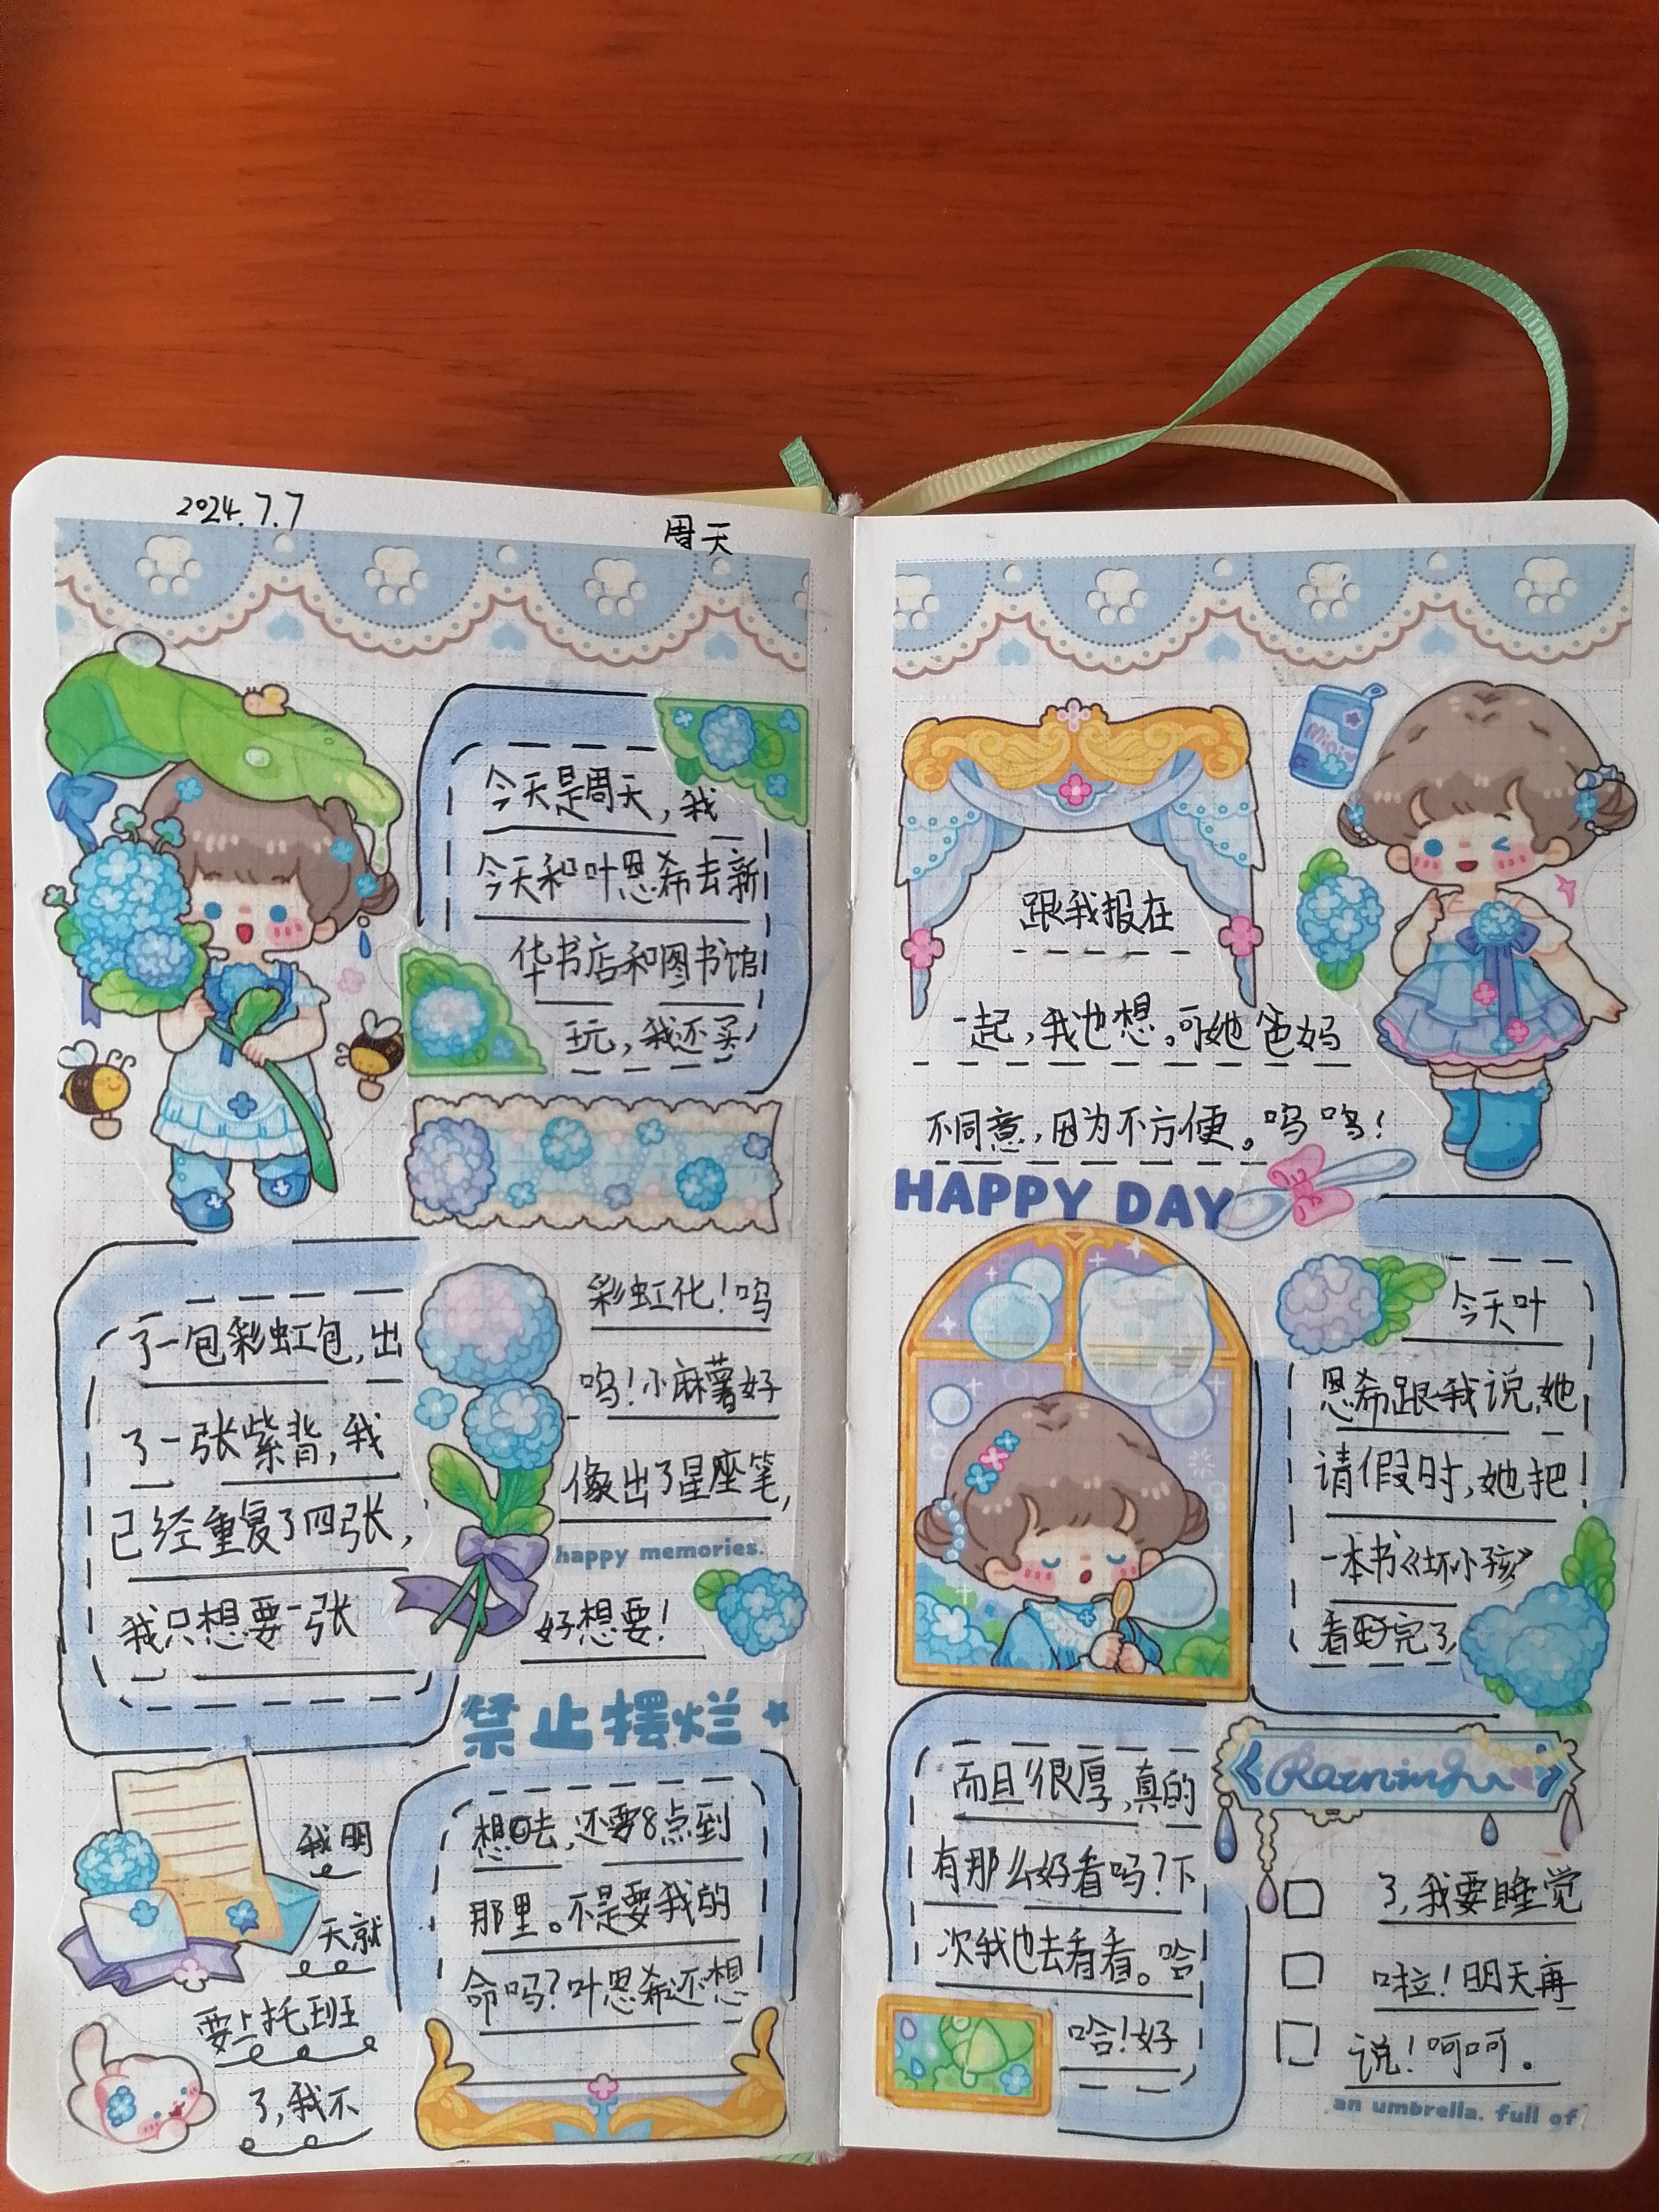 2024.7.7
周天
今天是周天,我
今天和叶恩希去新
华书店和图书馆
玩,我还买
了一包彩虹包,出
了一张紫背,我
已经重复了四张,
我只想要一张
彩虹化!呜
呜!小麻薯好
像出了星座笔,
happy memories.
好想要!
禁止摆烂
我明
天就
要上托班
了,我不
想去,还要8点到
那里。不是要我的
命吗?叶恩希还想
跟我报在
一起,我也想。可她爸妈
不同意,因为不方便。呜呜!
HAPPY DAY
Mini
今天叶
恩希跟我说,她
请假时,她把
一本书《坏小孩》
看完了,
而且很厚,真的
有那么好看吗?下
次我也去看看。哈
哈!好
Raining
了,我要睡觉
啦!明天再
说!呵呵。
an umbrella. full of